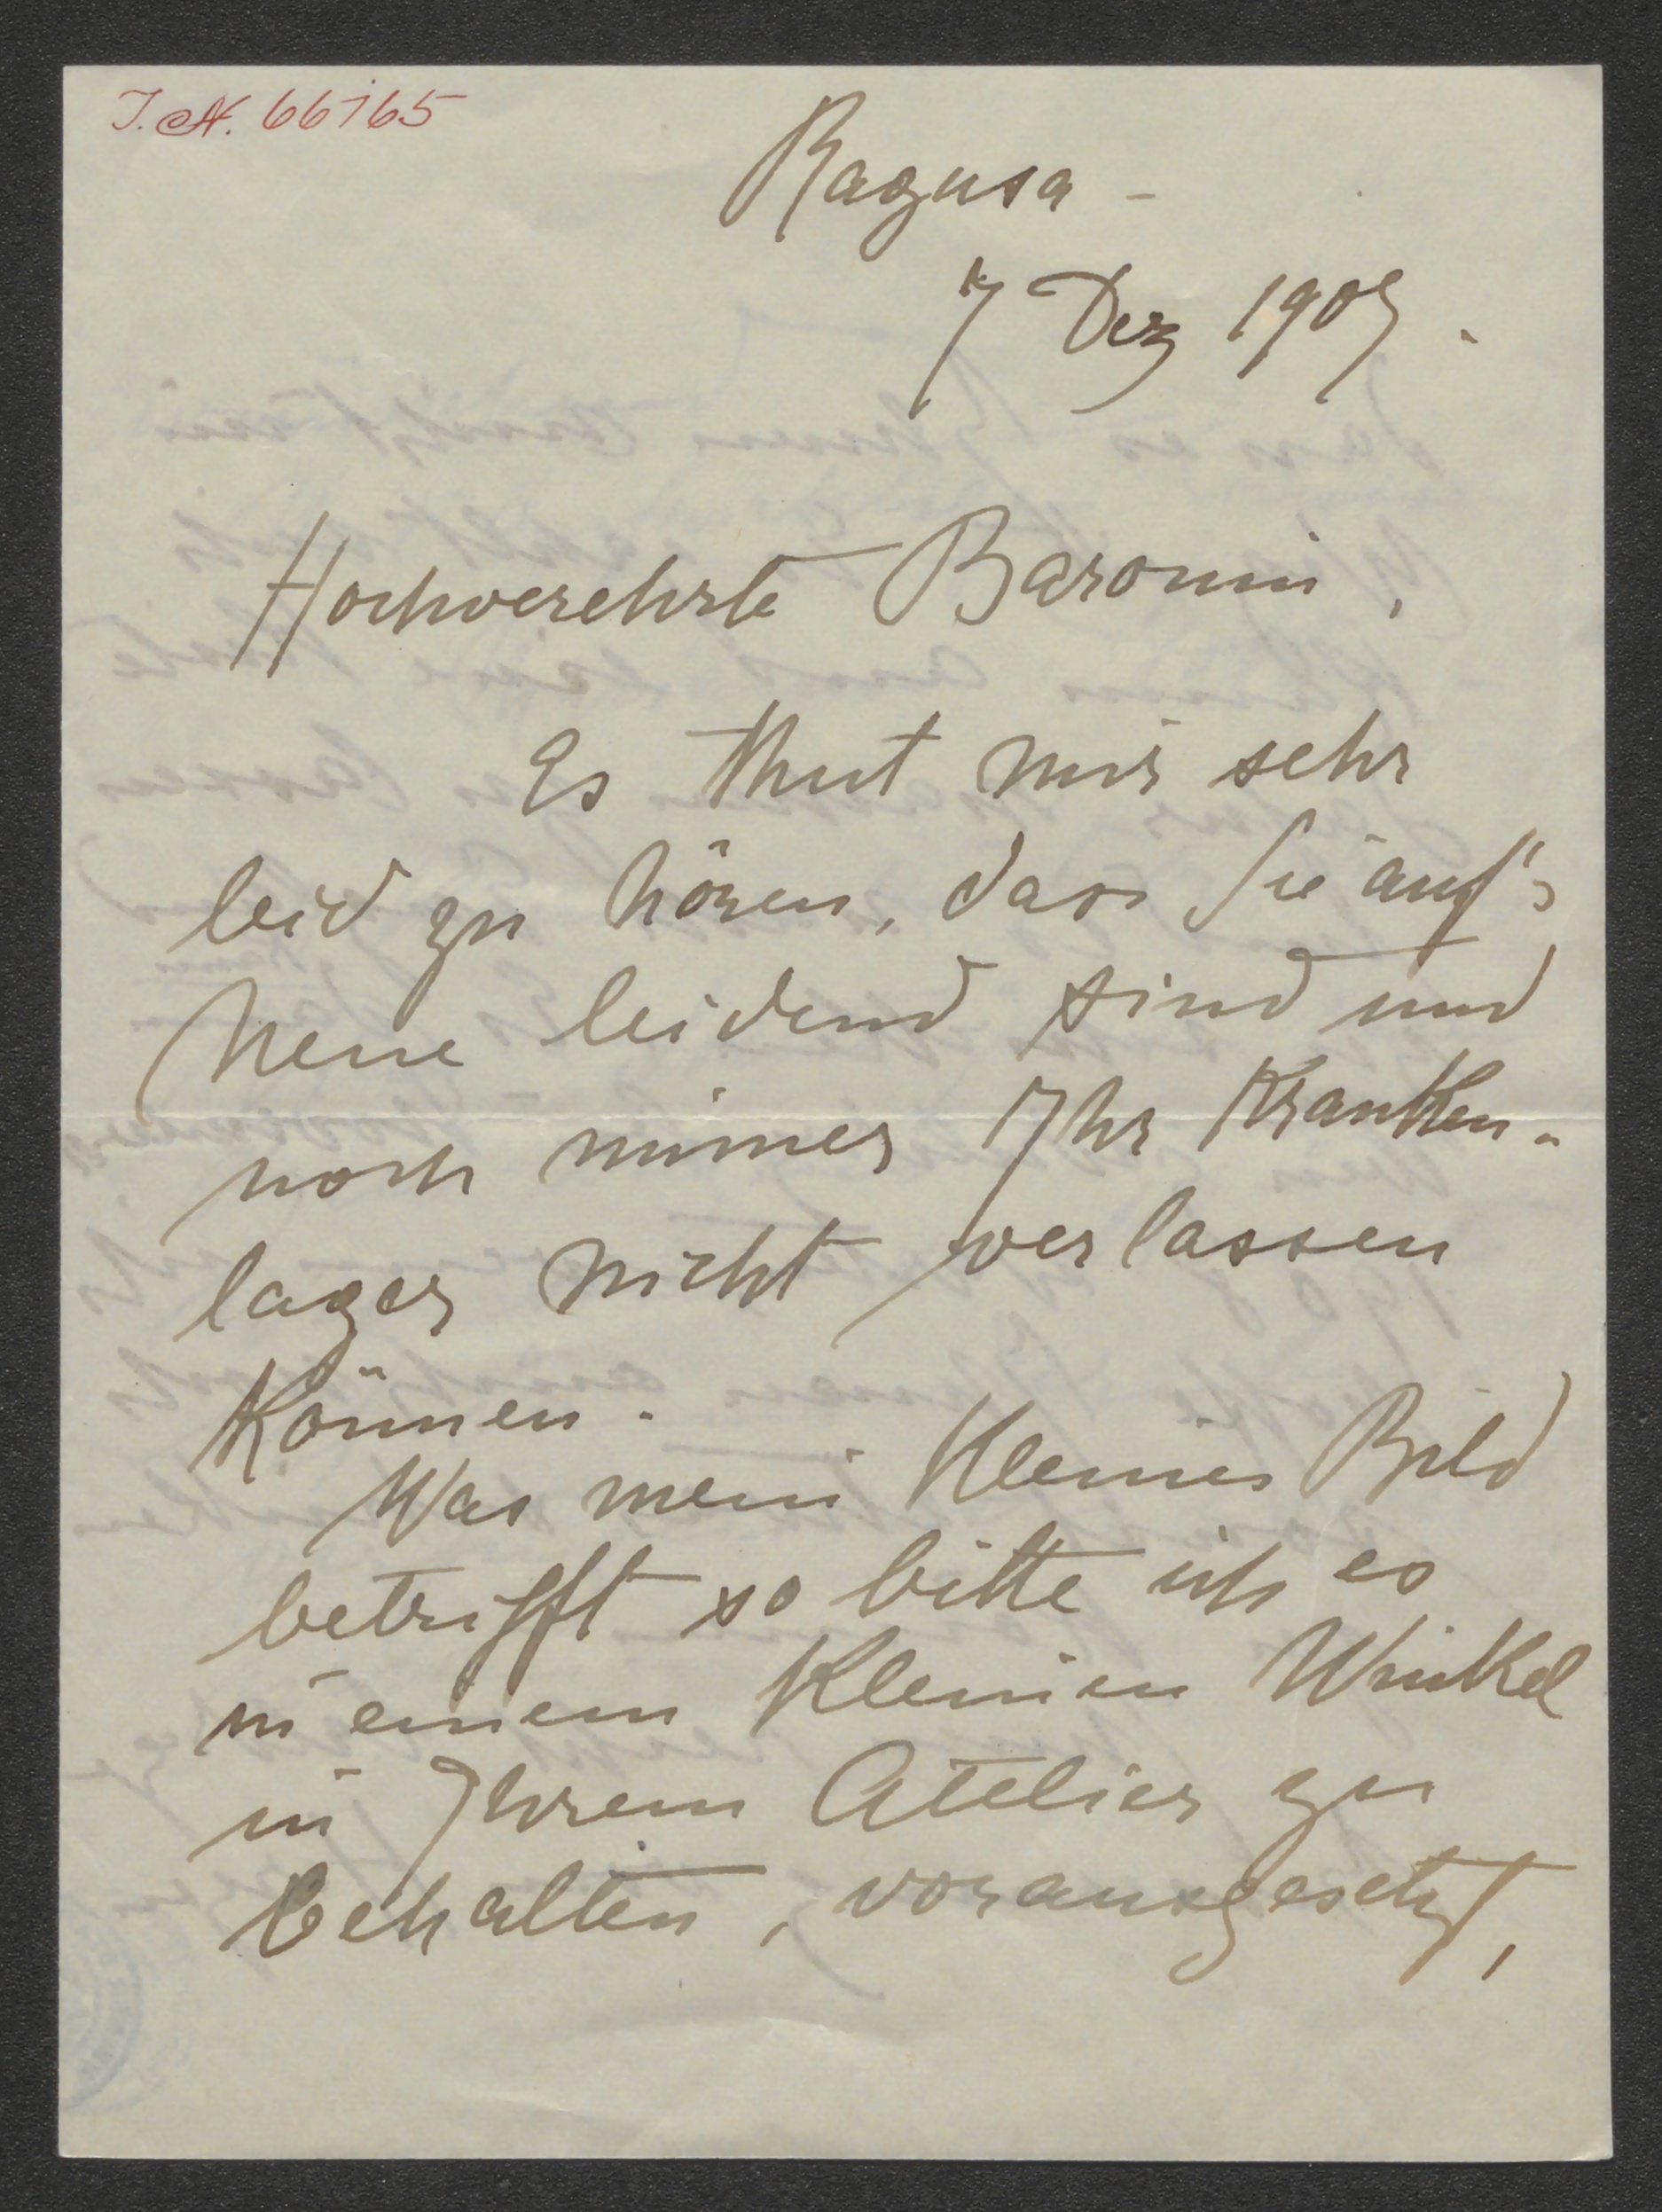 I.N. 66765
Ragusa –
7 Dez 1905.
Hochverehrte Baronin,
Es thut mir sehr
leid zu hören, dass Sie auf's
Neue leidend sind und
noch immer Ihr Kranken-
lager nicht verlassen
Können.
Was mein Kleines Bild
betrifft so bitte ich es
in einem Kleinen Winkel
in Ihrem Atelier zu
behalten, vorausgesetzt,